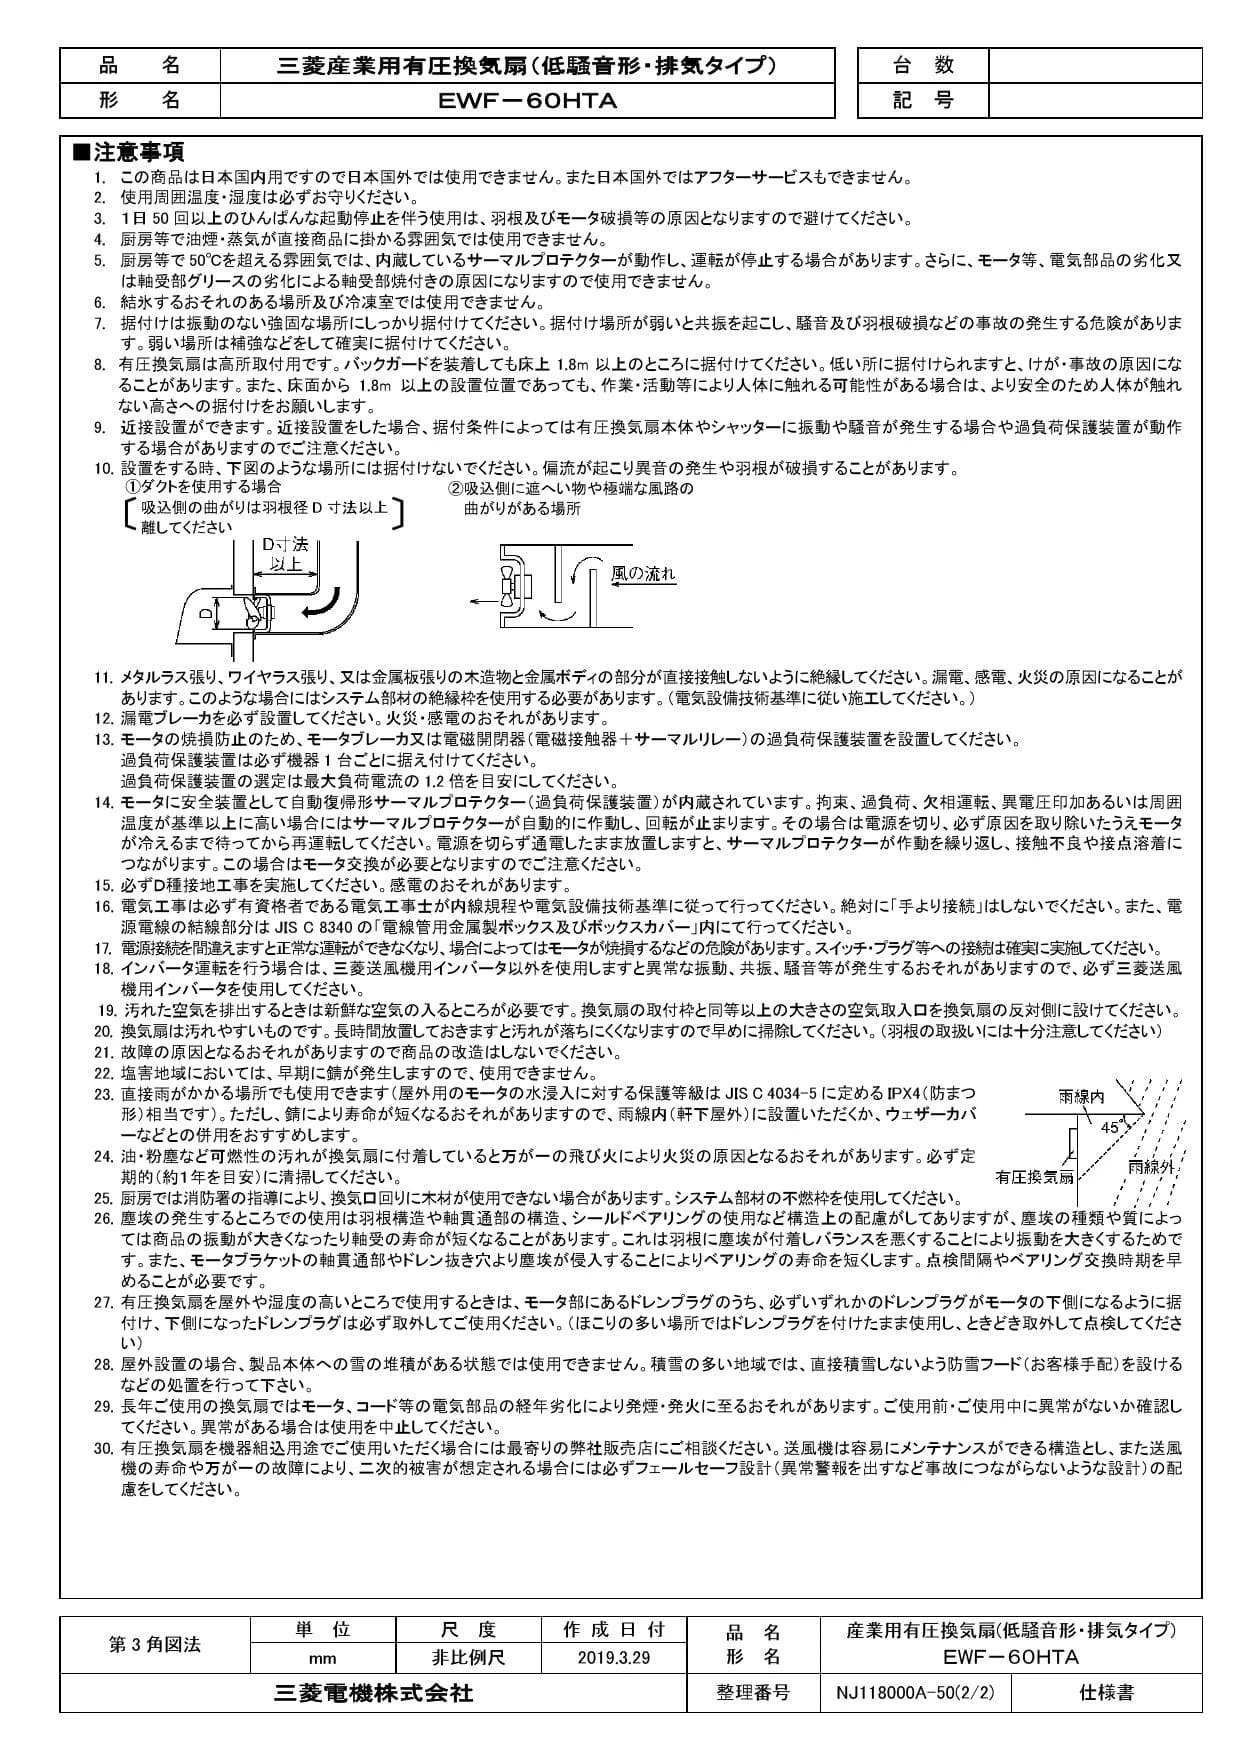 品　名　三菱産業用有圧換気扇（低騒音形・排気タイプ）　台　数
形　名　EWF－60HTA　記　号
■注意事項
1. この商品は日本国内用ですので日本国外では使用できません。また日本国外ではアフターサービスもできません。
2. 使用周囲温度・湿度は必ずお守りください。
3. 1日50回以上のひんぱんな起動停止を伴う使用は、羽根及びモータ破損等の原因となりますので避けてください。
4. 厨房等で油煙・蒸気が直接商品に掛かる雰囲気では使用できません。
5. 厨房等で50℃を超える雰囲気では、内蔵しているサーマルプロテクターが動作し、運転が停止する場合があります。さらに、モータ等、電気部品の劣化又
は軸受部グリースの劣化による軸受部焼付きの原因になりますので使用できません。
6. 結氷するおそれのある場所及び冷凍室では使用できません。
7. 据付けは振動のない強固な場所にしっかり据付けてください。据付け場所が弱いと共振を起こし、騒音及び羽根破損などの事故の発生する危険がありま
す。弱い場所は補強などをして確実に据付けてください。
8. 有圧換気扇は高所取付用です。バックガードを装着しても床上 1.8m 以上のところに据付けてください。低い所に据付けられますと、けが・事故の原因にな
ることがあります。また、床面から 1.8m 以上の設置位置であっても、作業・活動等により人体に触れる可能性がある場合は、より安全のため人体が触れ
ない高さへの据付けをお願いします。
9. 近接設置ができます。近接設置をした場合、据付条件によっては有圧換気扇本体やシャッターに振動や騒音が発生する場合や過負荷保護装置が動作
する場合がありますのでご注意ください。
10. 設置をする時、下図のような場所には据付けないでください。偏流が起こり異音の発生や羽根が破損することがあります。
①ダクトを使用する場合
吸込側の曲がりは羽根径D寸法以上
離してください
②吸込側に遮へい物や極端な風路の
曲がりがある場所
D寸法
以上
D
風の流れ
11. メタルラス張り、ワイヤラス張り、又は金属板張りの木造物と金属ボディの部分が直接接触しないように絶縁してください。漏電、感電、火災の原因になることが
あります。このような場合にはシステム部材の絶縁枠を使用する必要があります。（電気設備技術基準に従い施工してください。）
12. 漏電ブレーカを必ず設置してください。火災・感電のおそれがあります。
13. モータの焼損防止のため、モータブレーカ又は電磁開閉器（電磁接触器＋サーマルリレー）の過負荷保護装置を設置してください。
過負荷保護装置は必ず機器1台ごとに据え付けてください。
過負荷保護装置の選定は最大負荷電流の1.2倍を目安にしてください。
14. モータに安全装置として自動復帰形サーマルプロテクター（過負荷保護装置）が内蔵されています。拘束、過負荷、欠相運転、異電圧印加あるいは周囲
温度が基準以上に高い場合にはサーマルプロテクターが自動的に作動し、回転が止まります。その場合は電源を切り、必ず原因を取り除いたうえモータ
が冷えるまで待ってから再運転してください。電源を切らず通電したまま放置しますと、サーマルプロテクターが作動を繰り返し、接触不良や接点溶着に
つながります。この場合はモータ交換が必要となりますのでご注意ください。
15. 必ずD種接地工事を実施してください。感電のおそれがあります。
16. 電気工事は必ず有資格者である電気工事士が内線規程や電気設備技術基準に従って行ってください。絶対に「手より接続」はしないでください。また、電
源電線の結線部分はJIS C 8340の「電線管用金属製ボックス及びボックスカバー」内にて行ってください。
17. 電源接続を間違えますと正常な運転ができなくなり、場合によってはモータが焼損するなどの危険があります。スイッチ・プラグ等への接続は確実に実施してください。
18. インバータ運転を行う場合は、三菱送風機用インバータ以外を使用しますと異常な振動、共振、騒音等が発生するおそれがありますので、必ず三菱送風
機用インバータを使用してください。
19. 汚れた空気を排出するときは新鮮な空気の入るところが必要です。換気扇の取付枠と同等以上の大きさの空気取入口を換気扇の反対側に設けてください。
20. 換気扇は汚れやすいものです。長時間放置しておきますと汚れが落ちにくくなりますので早めに掃除してください。（羽根の取扱いには十分注意してください）
21. 故障の原因となるおそれがありますので商品の改造はしないでください。
22. 塩害地域においては、早期に錆が発生しますので、使用できません。
23. 直接雨がかかる場所でも使用できます（屋外用のモータの水浸入に対する保護等級はJIS C 4034-5に定めるIPX4（防まつ
形）相当です）。ただし、錆により寿命が短くなるおそれがありますので、雨線内（軒下屋外）に設置いただくか、ウェザーカバ
ーなどとの併用をおすすめします。
24. 油・粉塵など可燃性の汚れが換気扇に付着していると万が一の飛び火により火災の原因となるおそれがあります。必ず定
期的（約1年を目安）に清掃してください。
25. 厨房では消防署の指導により、換気口回りに木材が使用できない場合があります。システム部材の不燃枠を使用してください。
雨線内
45°
雨線外
有圧換気扇
26. 塵埃の発生するところでの使用は羽根構造や軸貫通部の構造、シールドベアリングの使用など構造上の配慮がしてありますが、塵埃の種類や質によっ
ては商品の振動が大きくなったり軸受の寿命が短くなることがあります。これは羽根に塵埃が付着しバランスを悪くすることにより振動を大きくするためで
す。また、モータブラケットの軸貫通部やドレン抜き穴より塵埃が侵入することによりベアリングの寿命を短くします。点検間隔やベアリング交換時期を早
めることが必要です。
27. 有圧換気扇を屋外や湿度の高いところで使用するときは、モータ部にあるドレンプラグのうち、必ずいずれかのドレンプラグがモータの下側になるように据
付け、下側になったドレンプラグは必ず取外してご使用ください。（ほこりの多い場所ではドレンプラグを付けたまま使用し、ときどき取外して点検してくださ
い）
28. 屋外設置の場合、製品本体への雪の堆積がある状態では使用できません。積雪の多い地域では、直接積雪しないよう防雪フード（お客様手配）を設ける
などの処置を行って下さい。
29. 長年ご使用の換気扇ではモータ、コード等の電気部品の経年劣化により発煙・発火に至るおそれがあります。ご使用前・ご使用中に異常がないか確認し
てください。異常がある場合は使用を中止してください。
30. 有圧換気扇を機器組込用途でご使用いただく場合には最寄りの弊社販売店にご相談ください。送風機は容易にメンテナンスができる構造とし、また送風
機の寿命や万が一の故障により、二次的被害が想定される場合には必ずフェールセーフ設計（異常警報を出すなど事故につながらないような設計）の配
慮をしてください。
第3角図法　単　位　尺　度　作成日付　品　名　産業用有圧換気扇(低騒音形・排気タイプ)
mm　非比例尺　2019.3.29　形　名　EWF－60HTA
三菱電機株式会社　整理番号　NJ118000A-50(2/2)　仕様書